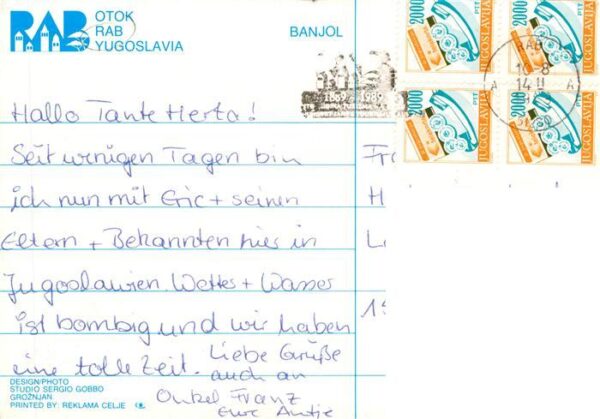 RAB
OTOK
RAB
YUGOSLAVIA
BANJOL
2000 PTT JUGOSLAVIJA
2000 PTT JUGOSLAVIJA
2000 PTT JUGOSLAVIJA
2000 PTT JUGOSLAVIJA
1889-1989
RAB
A A
Hallo Tante Herta!
Seit wenigen Tagen bin
ich nun mit Eric + seinen
Eltern + Bekannten hier in
Jugoslawien. Wetter + Wasser
ist bombig und wir haben
eine tolle Zeit. Liebe Grüße
auch an
Onkel Franz
Eure Antje
Fr
H
L
DESIGN/PHOTO
STUDIO SERGIO GOBBO
GROŽNJAN
PRINTED BY: REKLAMA CELJE